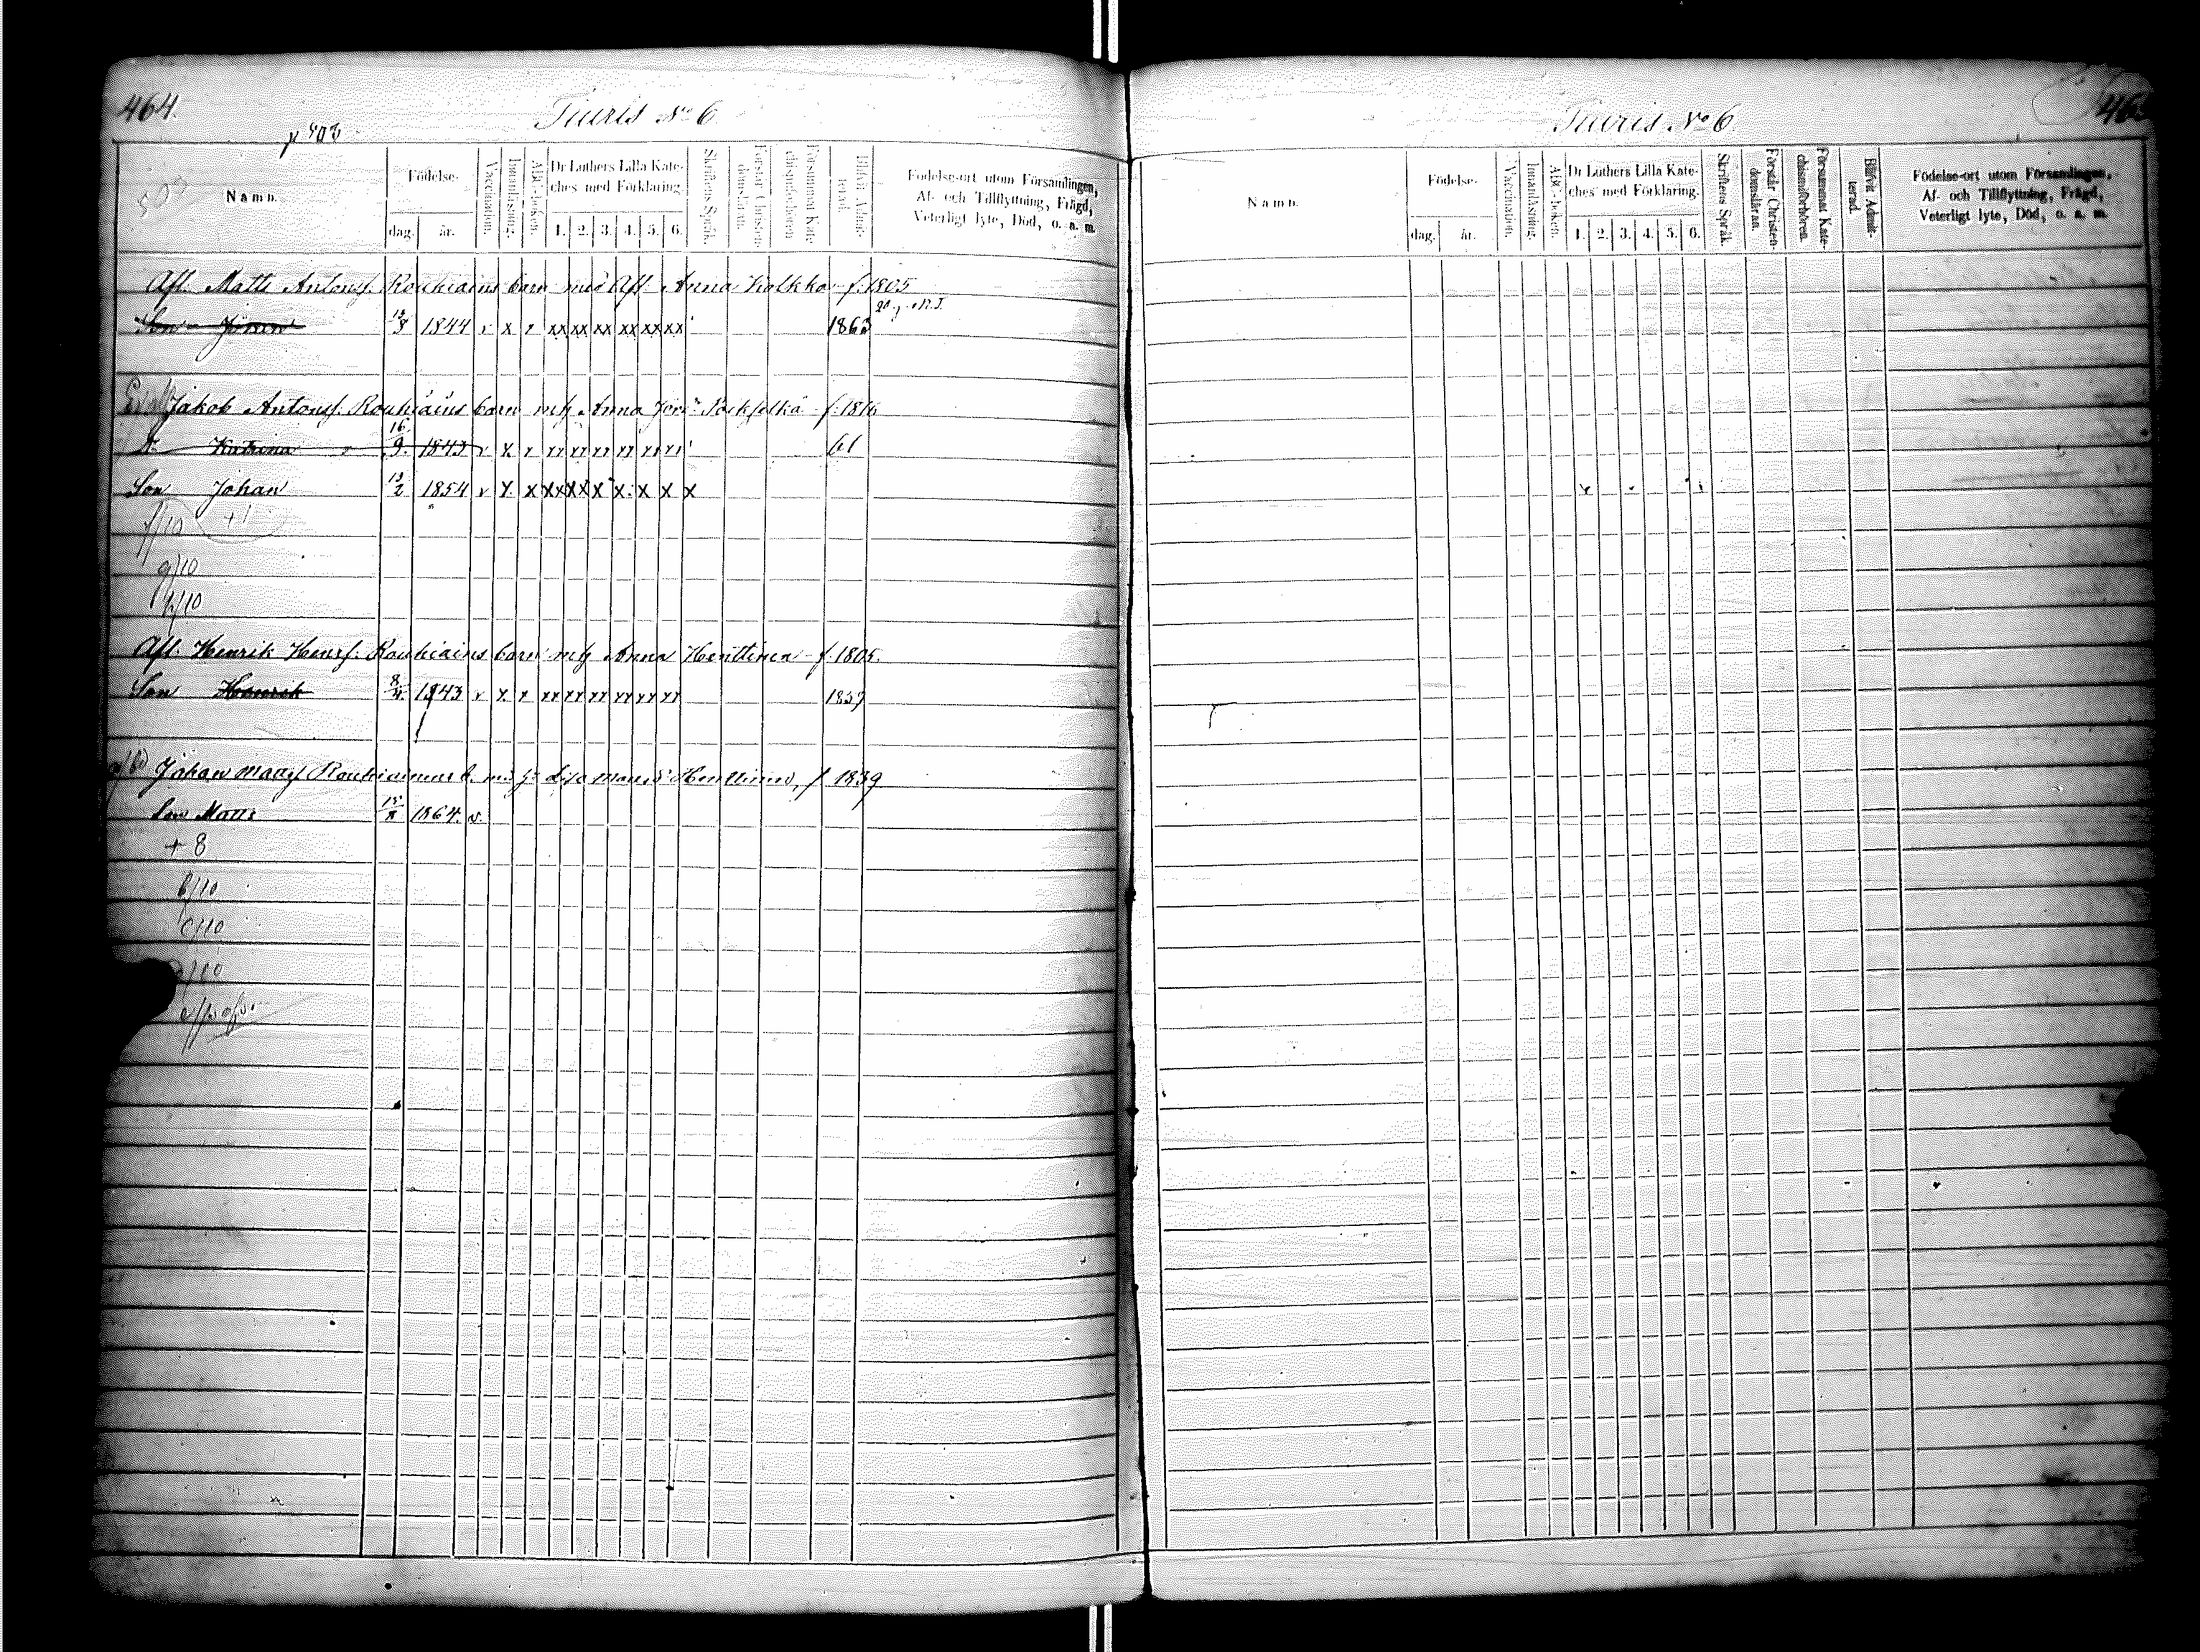 464.
Tiuris No 6
p 403
503
Namn.
Födelse-
dag.
år.
Vaccination.
Innanläsning.
ABC-boken.
Dr Luthers Lilla Kate-
ches med Förklaring.
1. 2. 3. 4. 5. 6.
Skriftens Språk.
Förstår Christen-
domsläran.
Försummat Kate-
chismiförhören.
Blifvit Admit-
terad.
Födelse-ort utom Församlingen,
Af- och Tillflyttning, Frägd,
Veterligt lyte, Död, o. a. m.
Afl. Matts Antonsf. Rouhiains barn med Afl. Anna Kolkka f. 1805
Son 13/8 1844 v x x xx xx xx xx xx xx 1863
Jakob Antonsf. Rouhiains barn m h Anna f. 1816
D. Katrina 16/9 1843 v x x xx xx xx xx xx xx 61
Son Johan 13/2 1854 v x x xx xx x x x x x
f/10 +1
g/10
h/10
Afl. Henrik Henrsf. Rouhiains barn m h Anna Henttinen f. 1805.
Son Henrik 8/4 1843 v x x xx xx xx xx xx xx 1859
Johan Matts Rouhiainens b. Henttinen, f 1839
Son Matts 1864. v.
+ 8
b/10
c/10
d/10
Tiuris No 6
Namn.
Födelse-
dag.
år.
Vaccination.
Innanläsning.
ABC-boken.
Dr Luthers Lilla Kate-
ches med Förklaring.
1. 2. 3. 4. 5. 6.
Skriftens Språk.
Förstår Christen-
domsläran.
Försummat Kate-
chismiförhören.
Blifvit Admit-
terad.
Födelse-ort utom Församlingen,
Af- och Tillflyttning, Frägd,
Veterligt lyte, Död, o. a. m.